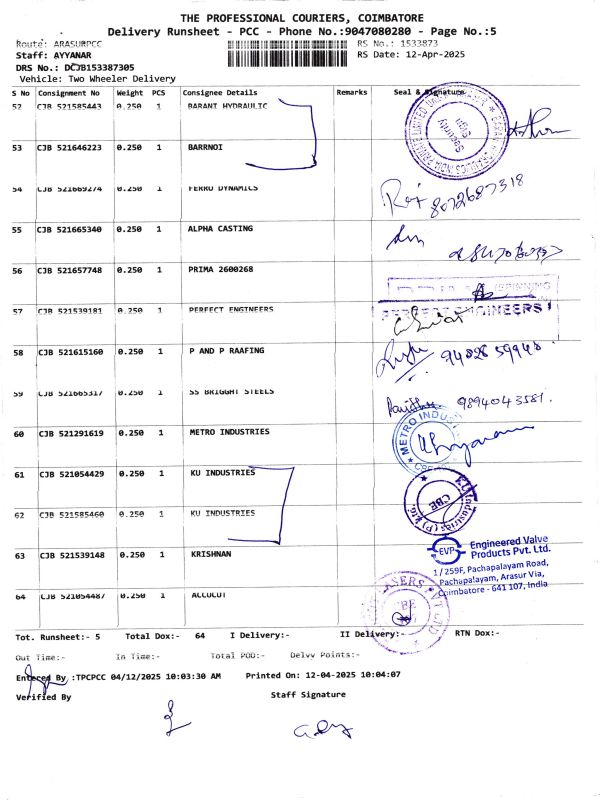 THE PROFESSIONAL COURIERS, COIMBATORE
Delivery Runsheet - PCC - Phone No.:9047080280 - Page No.:5
Route: ARASURPCC RS No.: 1533873
Staff: AYYANAR RS Date: 12-Apr-2025
DRS No.: DCJB153387305
Vehicle: Two Wheeler Delivery
S No Consignment No Weight PCS Consignee Details Remarks Seal & Signature
52 CJB 521585443 0.250 1 BARANI HYDRAULIC
Security
Sign
53 CJB 521646223 0.250 1 BARRNOI
54 CJB 521669274 0.250 1 FERRO DYNAMICS
8072687318
55 CJB 521665340 0.250 1 ALPHA CASTING
56 CJB 521657748 0.250 1 PRIMA 2600268
SPINNING
57 CJB 521539181 0.250 1 PERFECT ENGINEERS
PERFECT ENGINEERS
58 CJB 521615160 0.250 1 P AND P RAAFING
59 CJB 521665317 0.250 1 SS BRIGGHT STEELS
9894043581.
60 CJB 521291619 0.250 1 METRO INDUSTRIES
METRO INDUST
61 CJB 521054429 0.250 1 KU INDUSTRIES
CBE
62 CJB 521585460 0.250 1 KU INDUSTRIES
63 CJB 521539148 0.250 1 KRISHNAN
EVP Engineered Valve
Products Pvt. Ltd.
1/259F, Pachapalayam Road,
Pachapalayam, Arasur Via,
Coimbatore - 641 107, India
64 CJB 521054487 0.250 1 ACCUCUT
CBE
Tot. Runsheet:- 5 Total Dox:- 64 I Delivery:- II Delivery:- RTN Dox:-
Out Time:- In Time:- Total POD:- Delvy Points:-
Entered By :TPCPCC 04/12/2025 10:03:30 AM Printed On: 12-04-2025 10:04:07
Verified By Staff Signature